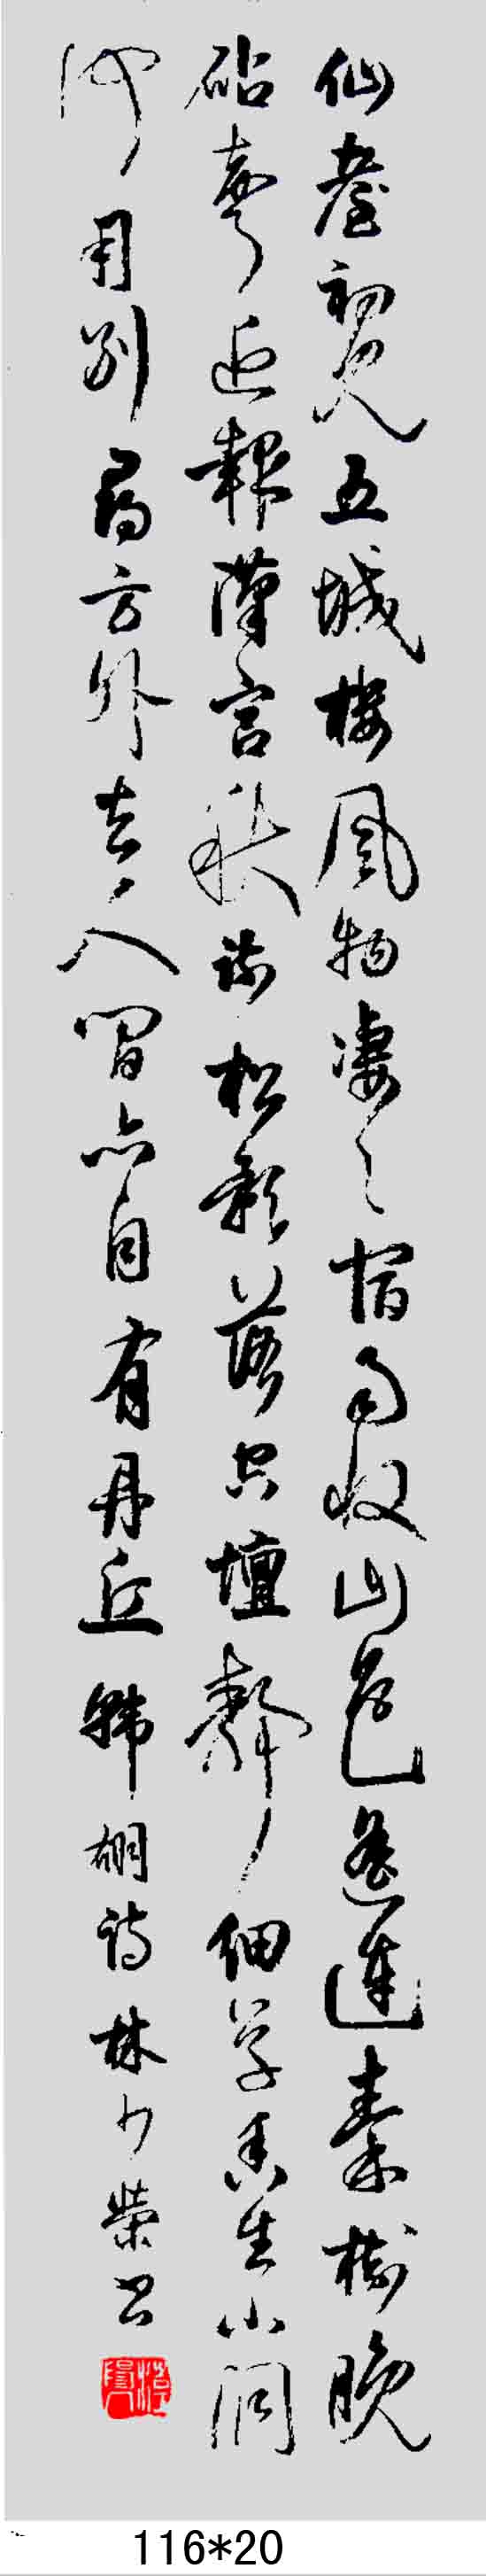 仙臺初見五城楼風物凄凄宿雨收山色遥連秦树晚
砧聲近報漢宫秋疏松影落空壇静細草香生小洞
何用别尋方外去人間亦自有丹丘韩翃诗林少荣书
116*20